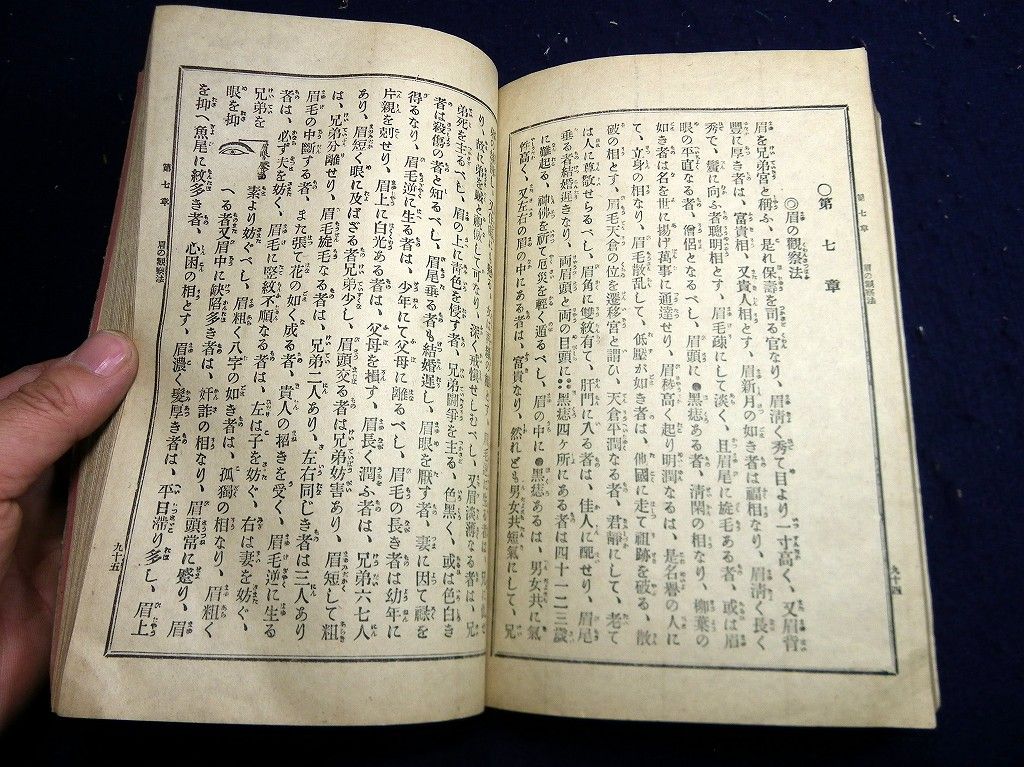 第七章　眉の觀察法
九十四
〇第七章
◎眉の觀察法
眉を兄弟宮と稱ふ、是れ保壽を司る官なり、眉淸く秀て目より一寸高く、又眉背
豐に厚き者は、富貴相、又貴人相とす、眉新月の如き者は福相なり、眉淸く長く
秀で、鬢に向ふ者聰明相とす、眉毛疎にして淡く、且眉尾に旋毛ある者、或は眉
眼の平直なる者、僧侶となるべし、眉頭に●黑痣ある者、淸閑の相なり、柳葉の
如き者は名を世に揚げ萬事に通達せり、眉稜高く起り明潤なるは、是名譽の人に
て、立身の相なり、眉毛散乱して、低壓が如き者は、他國に走て祖跡を破る、散
破の相とす、眉毛天倉の位を遷移宮と謂ひ、天倉平潤なる者、君靜にして、老て
は人に尊敬せらるべし、眉角に雙紋有て、肝門に入る者は、佳人に配せり、眉尾
垂る者結婚遲きなり、両眉頭と両の目頭に●●黑痣四ヶ所にある者は四十一二三歲
に難起る、神佛を祈て厄災を輕く遁るべし、眉の中に●黑痣あるは、男女共に氣
性高く、又左右の眉の中にある者は、富貴なり、然れども男女共短氣にして、兄
弟死を主るべし、眉の上に靑色を侵す者、兄弟鬪爭を主る、色黑く、或は色白き
者は殺傷の者と知るべし、眉尾垂る者も結婚遲し、眉眼を厭す者、妻に因て祿を
得るなり、眉毛逆に生る者は、少年にて父母に離るべし、眉毛の長き者は幼年に
片親を剋せり、眉上に白光ある者は、父母を損す、眉長く潤ふ者は、兄弟六七人
あり、眉短く眼に及ばざる者兄弟少し、眉頭交る者は兄弟妨害あり、眉短して粗
は、兄弟分離せり、眉毛旋毛なる者は、兄弟二人あり、左右同じき者は三人あり
眉毛の中斷する者、また張て花の如く成る者、貴人の招きを受く、眉毛逆に生る
者は、必ず夫を妨く、眉毛に竪紋不順なる者は、左は子を妨ぐ、右は妻を妨ぐ、
兄弟を　素より妨ぐべし、眉粗く八字の如き者は、孤獨の相なり、眉粗く
眼を抑　へる者又眉中に缺陷多き者は、奸詐の相なり、眉頭常に蹙り、眉
を抑へ魚尾に紋多き者、心困の相とす、眉濃く髮厚き者は、平日滯り多し、眉上
第七章　眉の觀察法
九十五